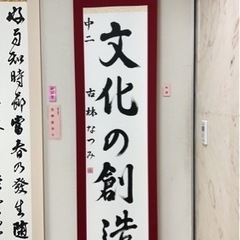 文化の創造
中二 古林なつみ
好雨知時節當春乃發生隨